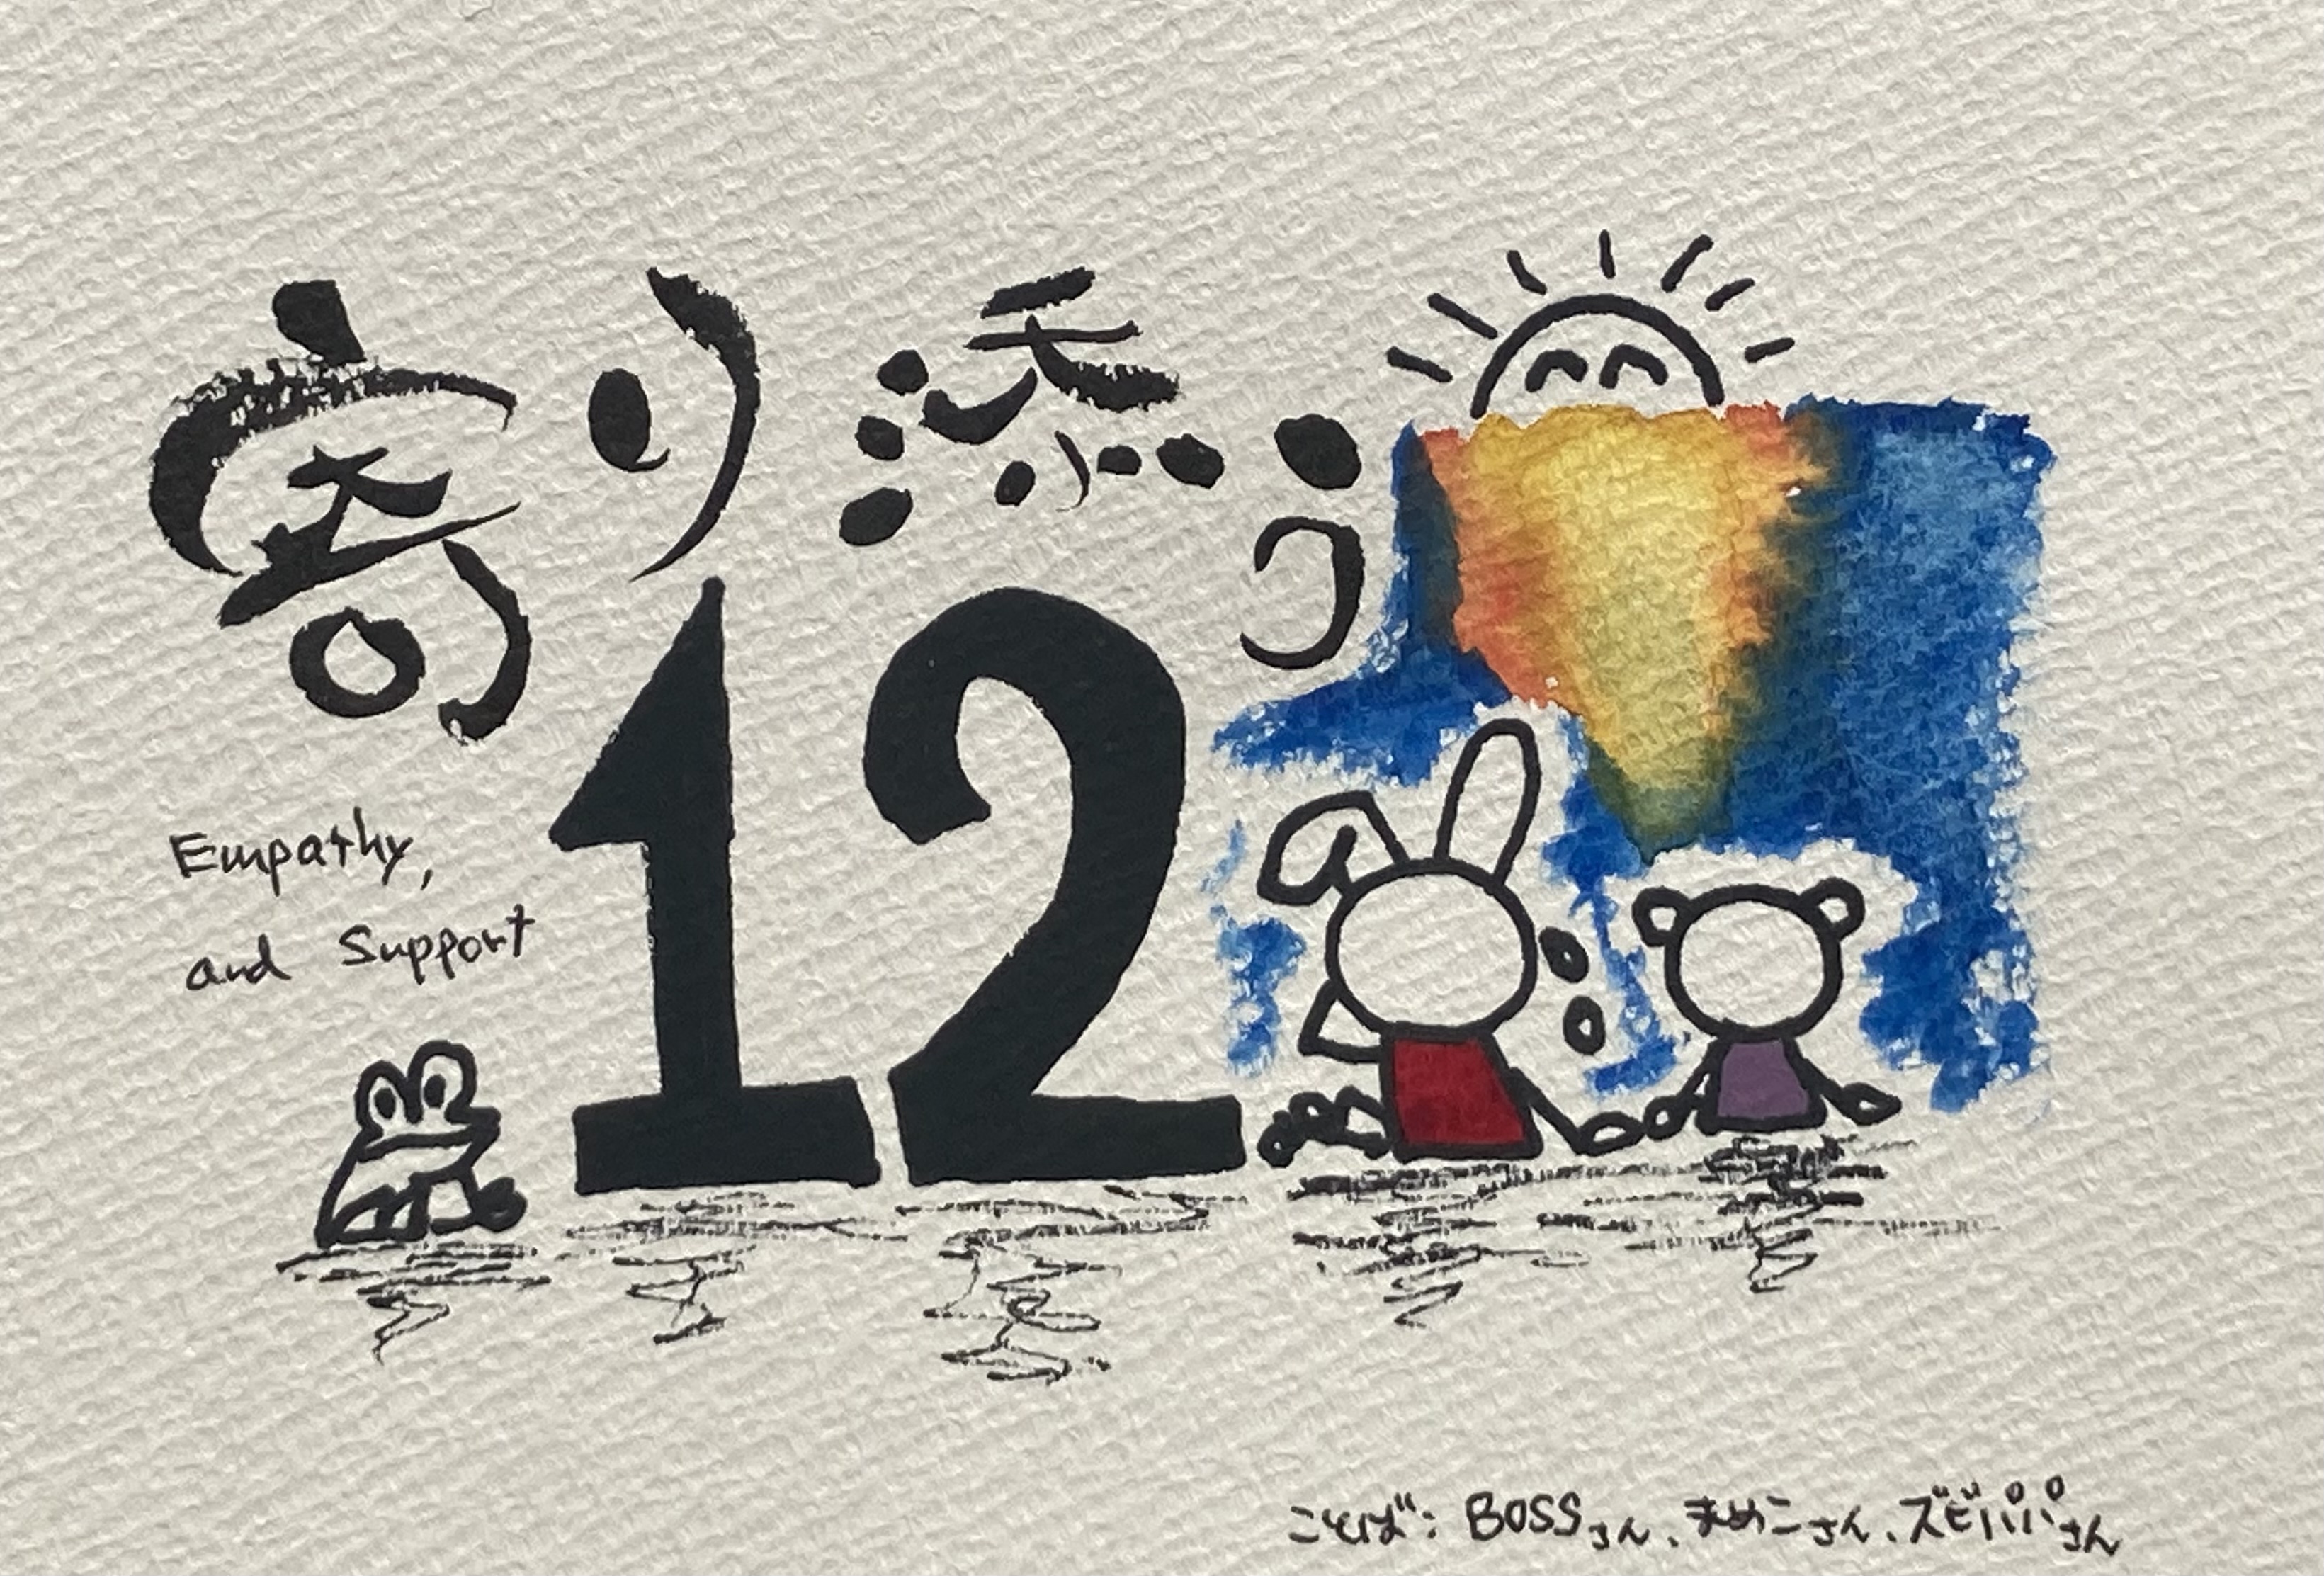 寄り添う
12
Empathy,
and Support
ことば: BOSSさん、まめこさん、ズビパパさん